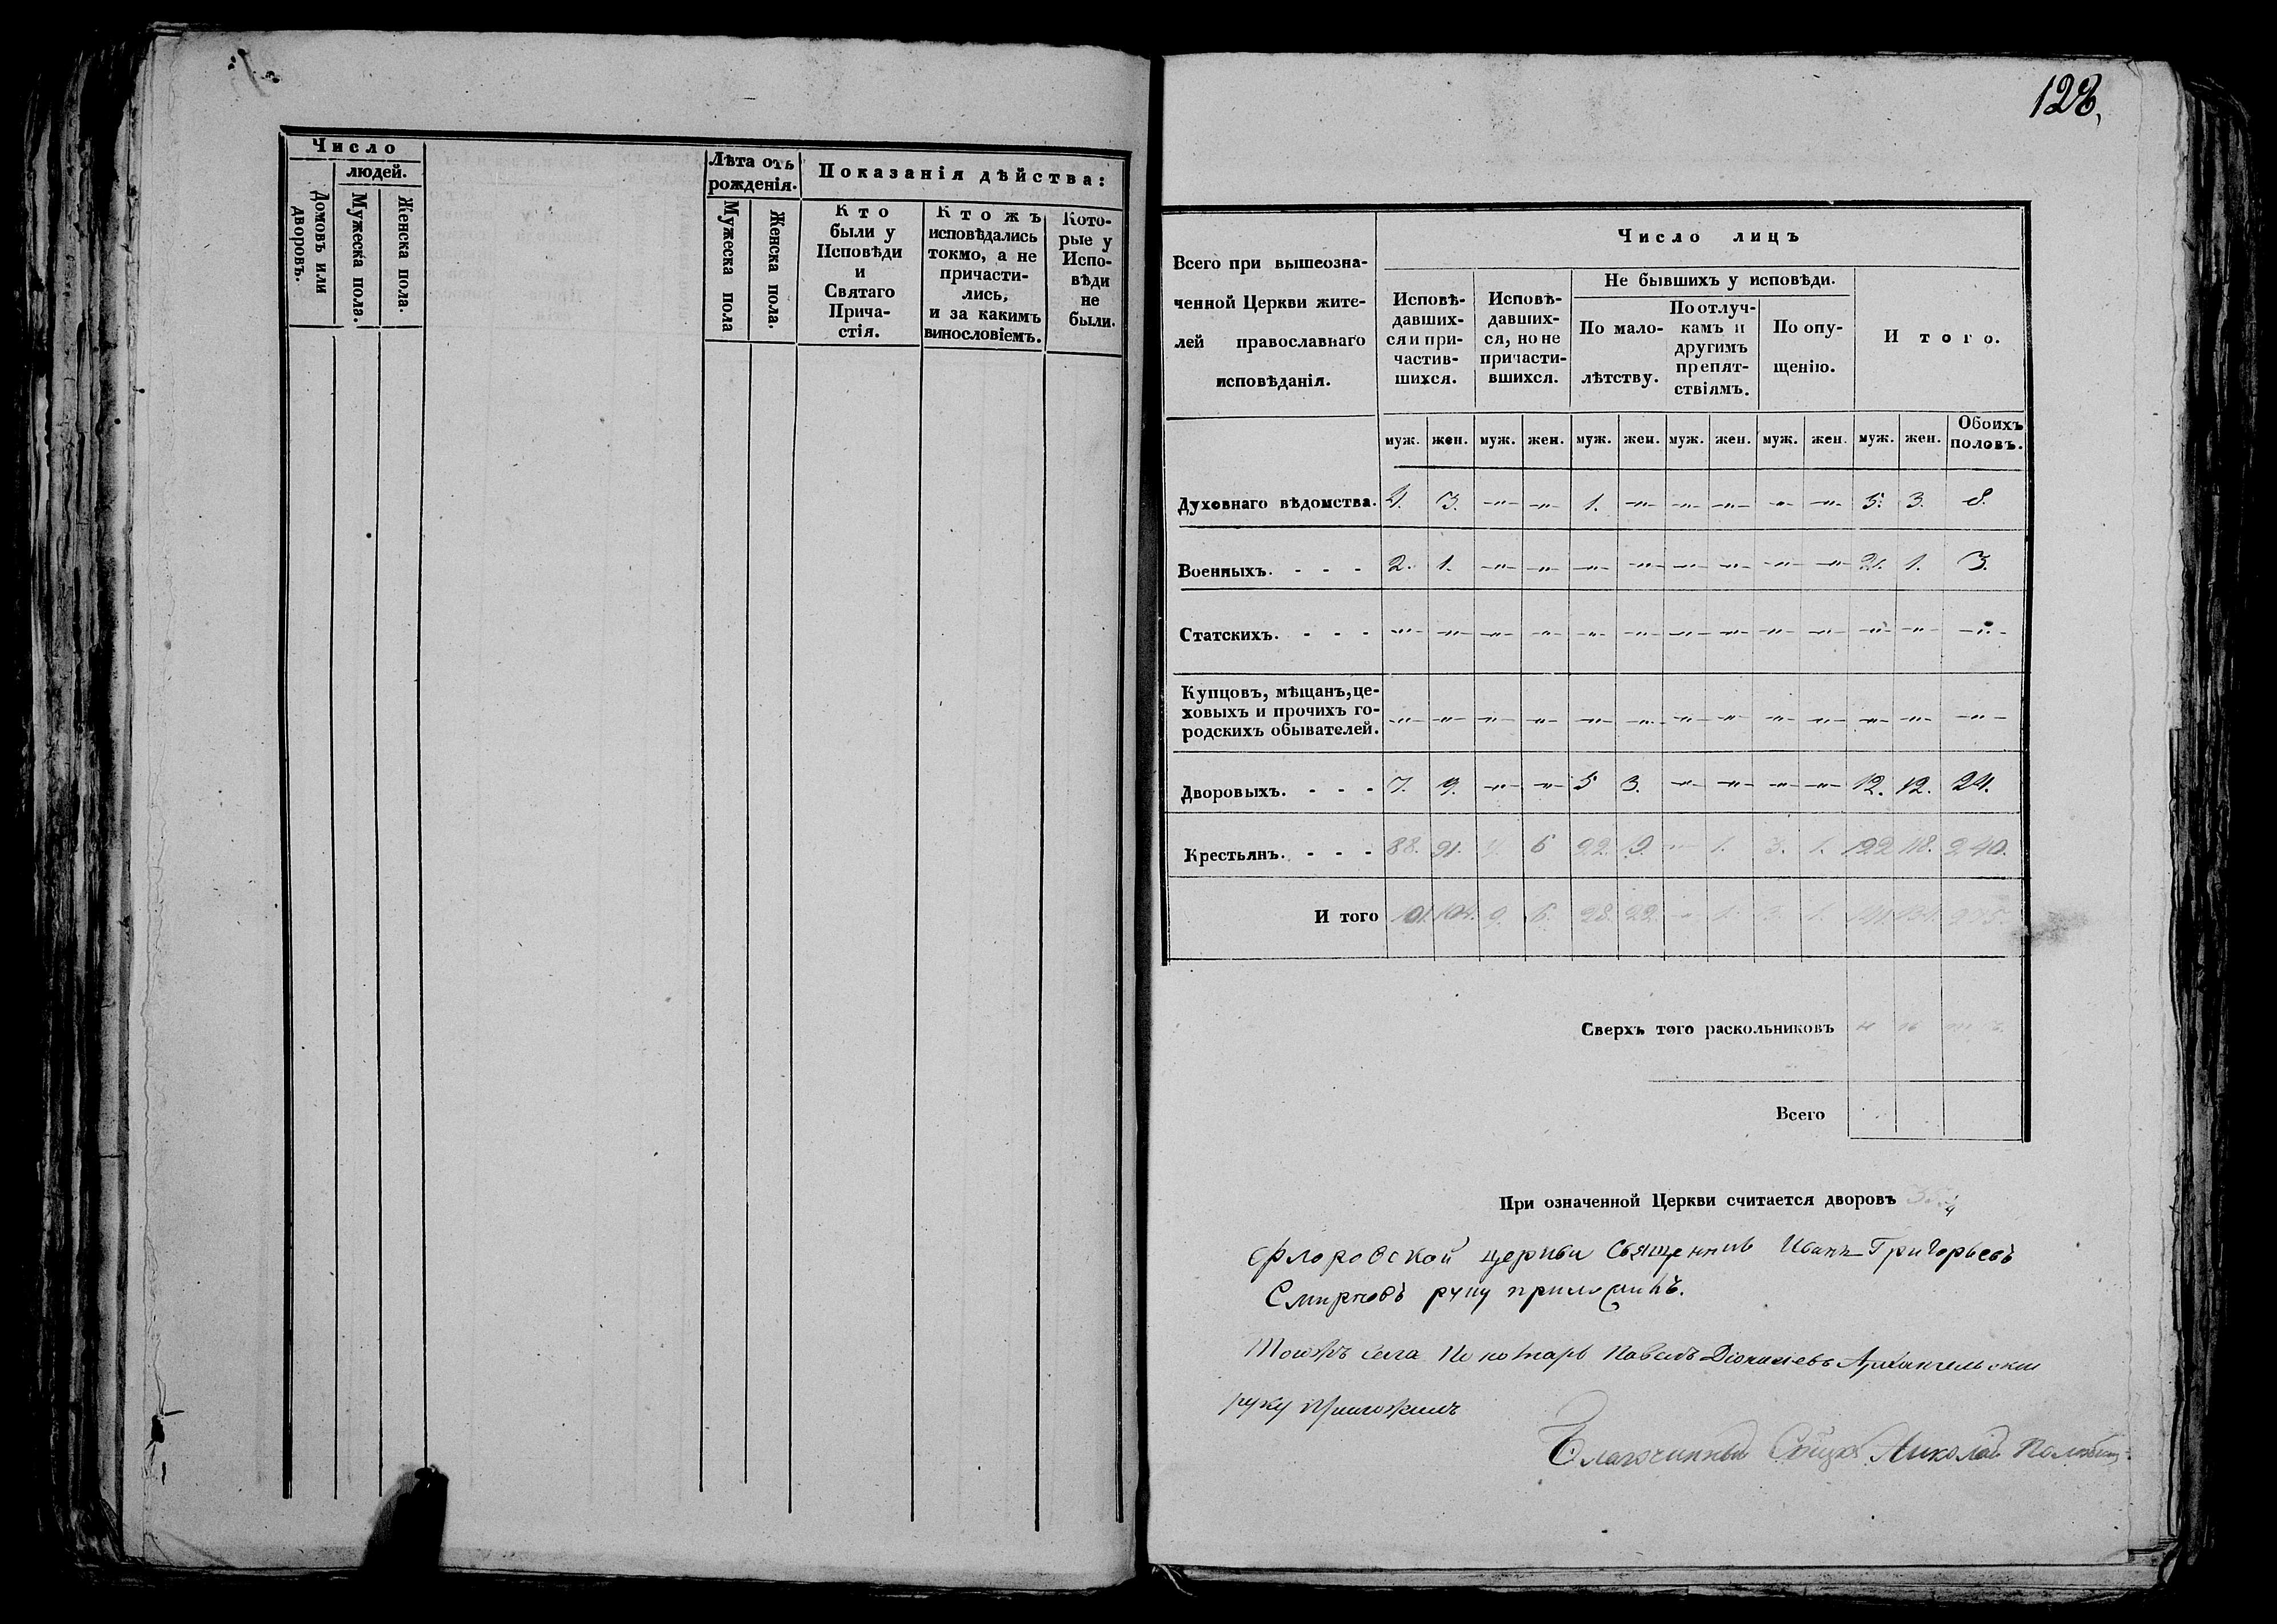 128.
Число
людей.
Домовъ или дворовъ.
Мужеска пола.
Женска пола.
Лѣта отъ
рожденія.
Мужеска пола
Женска пола.
Показанія дѣйства:
Кто
были у
Исповѣди
и
Святаго
Прича-
стія.
Ктожъ
исповѣдались
токмо, а не
причасти-
лись,
и за какимъ
винословіемъ.
Кото-
рые у
Испо-
вѣди
не
были.
Всего при вышеозна-
ченной Церкви жите-
лей православнаго
исповѣданія.
Число лицъ
Исповѣ-
давших-
ся и при-
частив-
шихся.
Исповѣ-
давших-
ся, но не
причасти-
вшихся.
Не бывшихъ у исповѣди.
По мало-
лѣтству.
По отлуч-
камъ и
другимъ
препят-
ствіямъ.
По опу-
щенію.
Итого.
муж. жен. муж. жен. муж. жен. муж. жен. муж. жен. муж. жен. Обоихъ половъ.
Духовнаго вѣдомства. 4. 3. -"- -"- 1. -"- -"- -"- -"- -"- 5. 3. 8.
Военныхъ. - - - 2. 1. -"- -"- -"- -"- -"- -"- -"- -"- 2. 1. 3.
Статскихъ. - - - -"- -"- -"- -"- -"- -"- -"- -"- -"- -"- -"- -"- -"-
Купцовъ, мѣщанъ, це-
ховыхъ и прочихъ го-
родскихъ обывателей. -"- -"- -"- -"- -"- -"- -"- -"- -"- -"- -"- -"- -"-
Дворовыхъ. - - - 7. 9. -"- -"- 5 3. -"- -"- -"- -"- 12. 12. 24.
Крестьянъ. - - - 88. 91. 6 22. -"- 1. 3. 1. 122 118. 240.
И того 101. 104. 9. 6. 28. 22. -"- 1. 3. 1.
Сверхъ того раскольниковъ
Всего
При означенной Церкви считается дворовъ
Флоровской церкви Священникъ Иванъ Григорьевъ
Смирновъ руку приложилъ.
Тогожъ села Пономарь Павелъ Діонисіевъ Архангельскій
руку приложилъ
Благочинный Николай